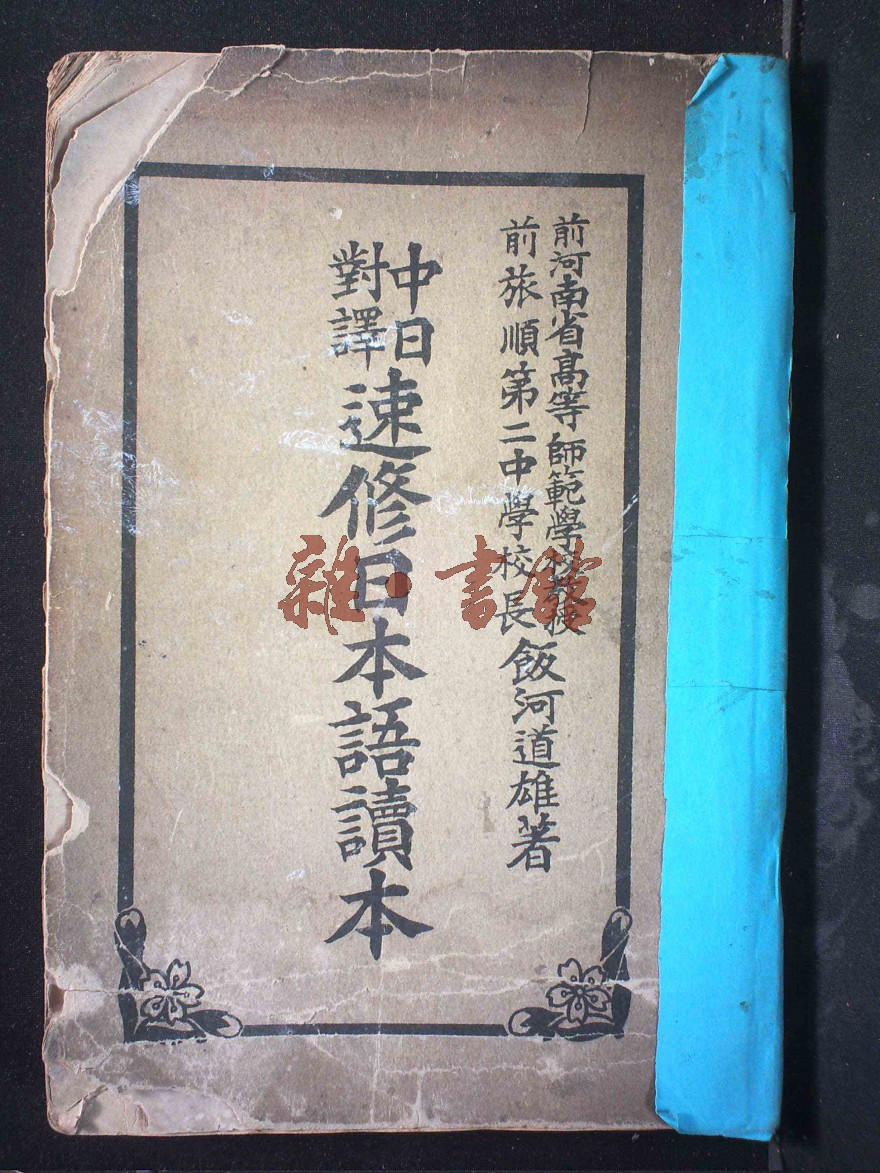 前河南省高等師範學校教授
前旅順第二中學校長
飯河道雄著
中日
對譯
速修日本語讀本
雜·書館